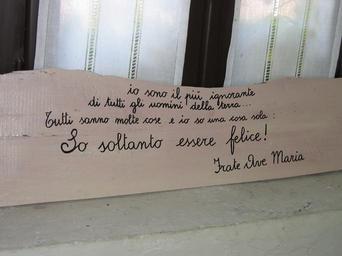 io sono il più ignorante
di tutti gli uomini della terra...
Tutti sanno molte cose e io so una cosa sola :
So soltanto essere felice!
Frate Ave Maria